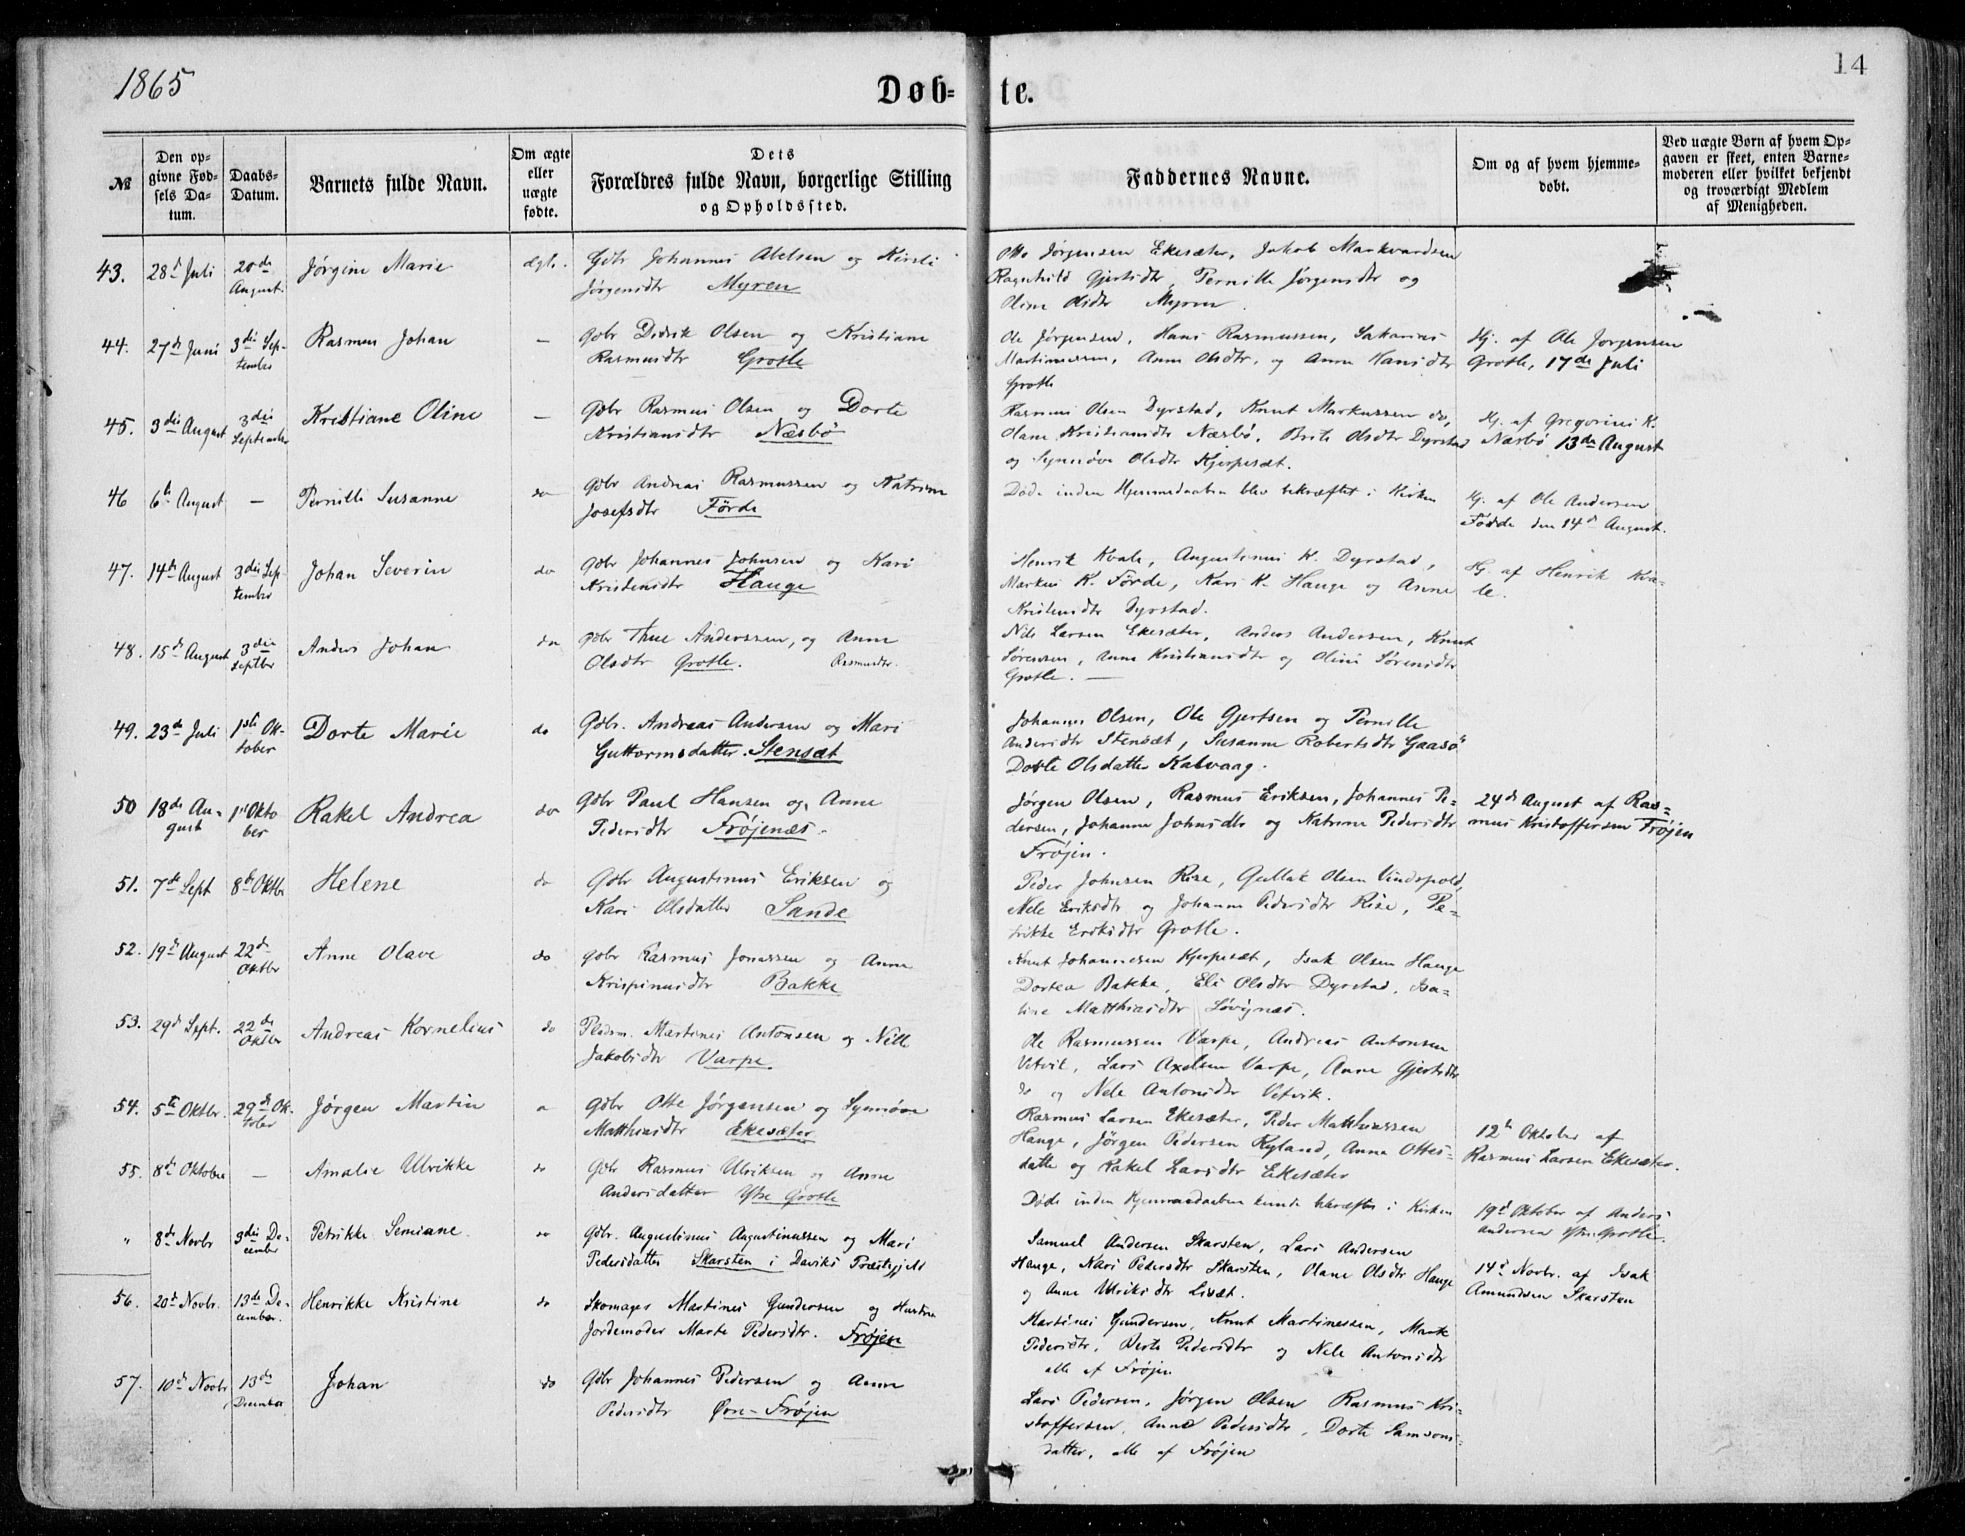 1865
Døb-
te.
14
№
Den op-
givne Fød-
sels Da-
tum.
Daabs-
Datum.
Barnets fulde Navn.
Om ægte
eller
uægte
fødte.
Dets
Forældres fulde Navn, borgerlige Stilling
og Opholdssted.
Faddernes Navne.
Om og af hvem hjemme-
døbt.
Ved uægte Børn af hvem Op-
gaven er skeet, enten Barne-
moderen eller hvilket bekjendt
og troværdigt Medlem
af Menigheden.
43.
28d Juli
20de
August.
Jørgine Marie
ægte.
Gbr Johannes Abelsen og Kirsti
Jørgensdtr Myren
Otto Jørgensen Ekesæter, Jakob Markvardsen
Ragnhild Gjertsdtr, Pernille Jørgensdtr og
Oline Olsdtr Myren.
44.
27de Juni
3die Sep-
tember
Rasmus Johan
—
Gbr Didrik Olsen og Kristiane
Rasmusdtr Grotle
Ole Jørgensen, Hans Rasmussen, Sakarias
Martinussen, Anne Olsdtr, og Anne Hansdtr
Grotle
Hj. af Ole Jørgensen
Grotle, 17de Juli
45.
3die August
3die
September
Kristiane Oline
—
Gbr Rasmus Olsen og Dorte
Kristiansdtr Næsbø
Rasmus Olsen Dyrstad, Knut Markussen do,
Olane Kristiansdtr Næsbø, Brite Olsdtr Dyrstad
og Synnøve Olsdtr Kjerpesæt.
Hj. af Gregorius K.
Næsbø 13de August
46
6te August
—
Pernille Susanne
do
Gbr Andreas Rasmussen og Katrine
Josefsdtr Förde
Døde inden Hjemmedaaben blev bekræftet i Kirken
Hj. af Ole Andersen
Förde den 14d August.
47.
14de August
3die Sep-
tember
Johan Severin
do
Gbr Johannes Johnsen og Kari
Kristensdtr Hauge
Henrik Kvale, Augustinus K. Dyrstad,
Markus K. Förde, Kari K. Hauge og Anne
Kristensdtr Dyrstad.
Hj. af Henrik Kva-
le.
48.
15de August
3die
Septbr
Anders Johan
do
Gbr Thue Anderssen, og Anne
Olsdtr Grotle. Rasmusdtr.
Nils Larsen Ekesæter, Anders Andersen, Knut
Sørensen, Anne Kristiansdtr og Oline Sørensdtr
Grotle. —
49.
23de Juli
1ste Ok-
tober
Dorte Marie
do
Gbr. Andreas Andersen og Mari
Guttormsdatter. Stensæt
Johannes Olsen, Ole Gjertsen og Pernille
Andersdtr Stensæt, Susanne Robertsdtr Gaasø
Dorte Olsdatter Kalvaag.
50
18de Au-
gust
1st Okto
ber
Rakel Andrea
do
Gbr Paul Hansen og Anne
Pedersdtr Frøjenæs.
Jørgen Olsen, Rasmus Eriksen, Johannes Pe-
dersen, Johanne Johnsdtr og Katrine Pedersdtr
Frøjen.
24de August af Ras-
mus Kristoffersen Frøjen
51.
7de Sept
8de Oktbr
Helene
do
Gbr Augustinus Eriksen og
Kari Olsdatter Sande
Peder Johnsen Rise, Gullak Olsen Vindspold,
Nele Eriksdtr og Johanne Pedersdtr Rise, Pe-
trikke Eriksdtr Grotle.
52.
19de August
22de
Oktbr
Anne Olave
do
Gbr Rasmus Jonassen og Anne
Krispinusdtr Bakke
Knut Johannesen Kjerpesæt, Isak Olsen Hauge
Dortea Bakke, Eli Olsdtr Dyrstad,
Matthiasdtr Løvignæs.
53.
29d Sept.
22de
Oktbr
Andreas Kornelius
do
Pldsm. Martines Antonsen og Nille
Jakobsdtr Varpe.
Ole Rasmussen Varpe, Andreas Antonsen
Vetvik, Lars Axelsen Varpe, Anne Gjertsdtr
do og Nele Antonsdtr Vetvik.
54.
5te Oktbr.
29de Ok-
tober
Jørgen Martin
Gbr Otte Jørgensen og Synnøve
Matthiasdtr Ekesæter
Rasmus Larsen Ekesæter, Peder Matthiassen
Hauge, Jørgen Pedersen Ryland, Anna Ottes-
datter og Rakel Larsdtr Ekesæter
12te Oktober af
Rasmus Larsen Ekesæter.
55.
8de Oktober
—
Amalie Ulrikke
do
Gbr Rasmus Ulriksen og Anne
Andersdatter Ytre Grotle
Døde inden Hjemmedaaben kunde bekræftes i Kirken
19d Oktober af Anders
Andersen Ytre Grotle.
"
8de Novbr
3die De-
cember
Petrikke Semiane.
do
Gbr. Augustinus Augustinussen og Mari
Pedersdatter Skarsten i Daviks Præstegjeld
Samuel Andersen Skarsten, Lars Andersen
Hauge, Kari Pedersdtr Skarsten, Olane Olsdtr Hauge
og Anne Ulriksdtr Lisæt.
14d Novbr. af Isak
Amundsen Skarsten
56.
20de Novbr.
13de De-
cember.
Henrikke Kristine
do
Skomager Martines Gundersen og Hustru
Jordemoder Marte Pedersdtr. Frøjen
Martines Gundersen, Knut Martinessen, Marte
Pedersdtr, Berte Pedersdtr og Nele Antonsdtr
alle af Frøjen
57.
10de Novbr
13de
December
Johan
do
Gbr Johannes Pedersen og Anne
Pedersdtr Øvre-Frøjen
Lars Pedersen, Jørgen Olsen Rasmus Kri-
stoffersen, Anne Pedersdtr, Dorte Samsons-
datter, alle af Frøjen